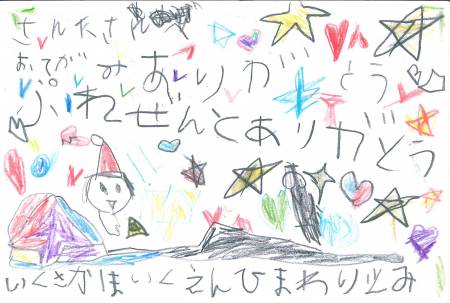 さんたさん
おてがみありがとう
ぷれぜんとありがとう
いくさかほいくえんひまわりぐみ